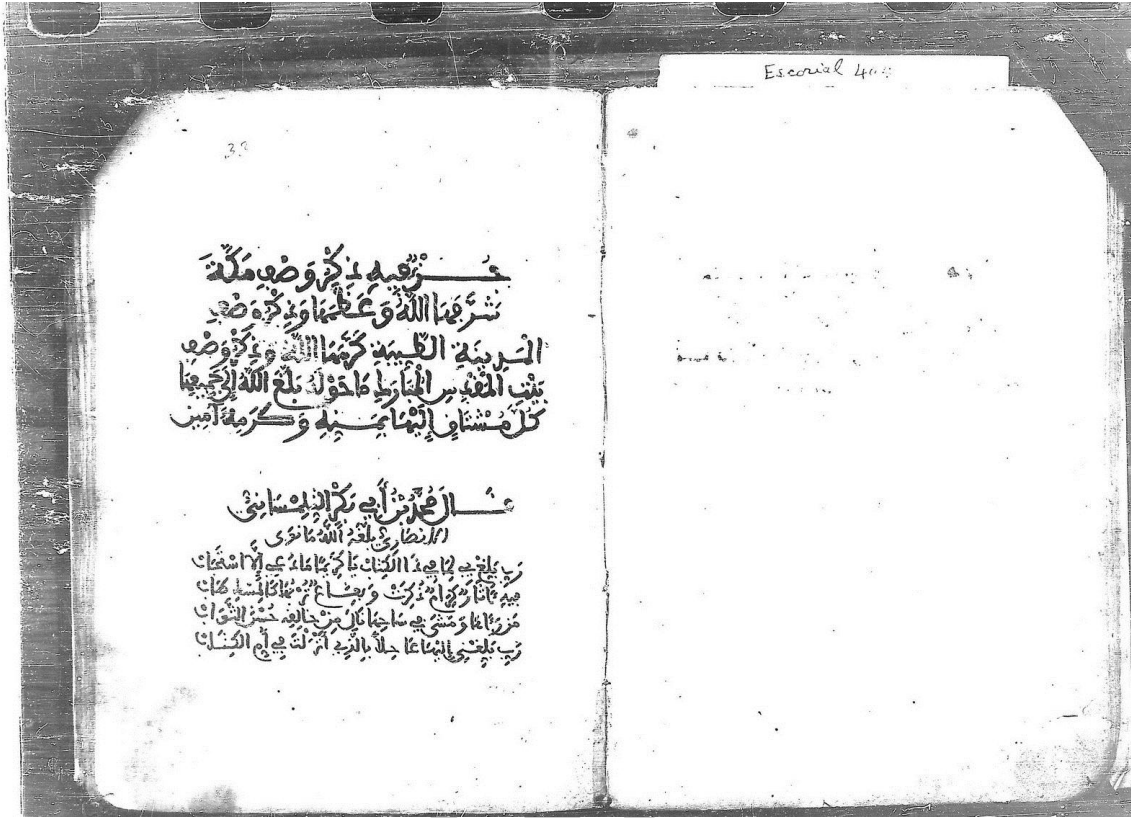 Escorial 40
33
جـــزء فيه ذِكْرُ وَصْفِ مَكَّةَ
شَرَّفَهَا اللَّهُ وَعَظَّمَهَا وَذِكْرُ وَصْفِ
الْمَدِينَةِ الطَّيِّبَةِ كَرَّمَهَا اللَّهُ وَذِكْرُ وَصْفِ
بَيْتِ الْمَقْدِسِ الْمُبَارَكِ مَا حَوْلَهُ بَلَّغَ اللَّهُ إِلَى جَمِيعِهَا
كُلَّ مُشْتَاقٍ إِلَيْهَا بِمَنِّهِ وَكَرَمِهِ آمِين
قَـــالَ مُحَمَّدُ بْنُ أَبِي بَكْرٍ التِّلِمْسَانِيُّ
الأنصاري بَلَّغَهُ اللَّهُ مَا نَوَى
رَبِّ بَلِّغْنِي لِمَا فِي ذَا الْكِتَاب يَا كَرِيمًا مَا دُعِي إِلَّا اسْتَجَاب
فِيهِ كِرَامٌ ذُكِرَتْ وَبِقَاع تُرْبُهَا كَالْمِسْكِ طَاب
مَن وَمَشَى فِي سَاحِهَا نَالَ مِنْ خَالِقِهِ حُسْنَ الثَّوَاب
رَبِّ بَلِّغْنِي إِلَيْهَا عَاجِلًا بِالَّذِي أَنْزَلْتَ فِي أُمِّ الْكِتَاب